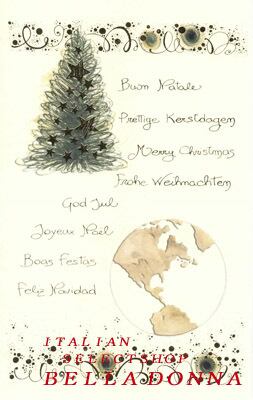 Buon Natale
Prettige Kerstdagen
Merry Christmas
Frohe Weihnachten
God Jul
Joyeux Noel
Boas Festas
Feliz Navidad
ITALIAN
SELECTSHOP
BELLADONNA